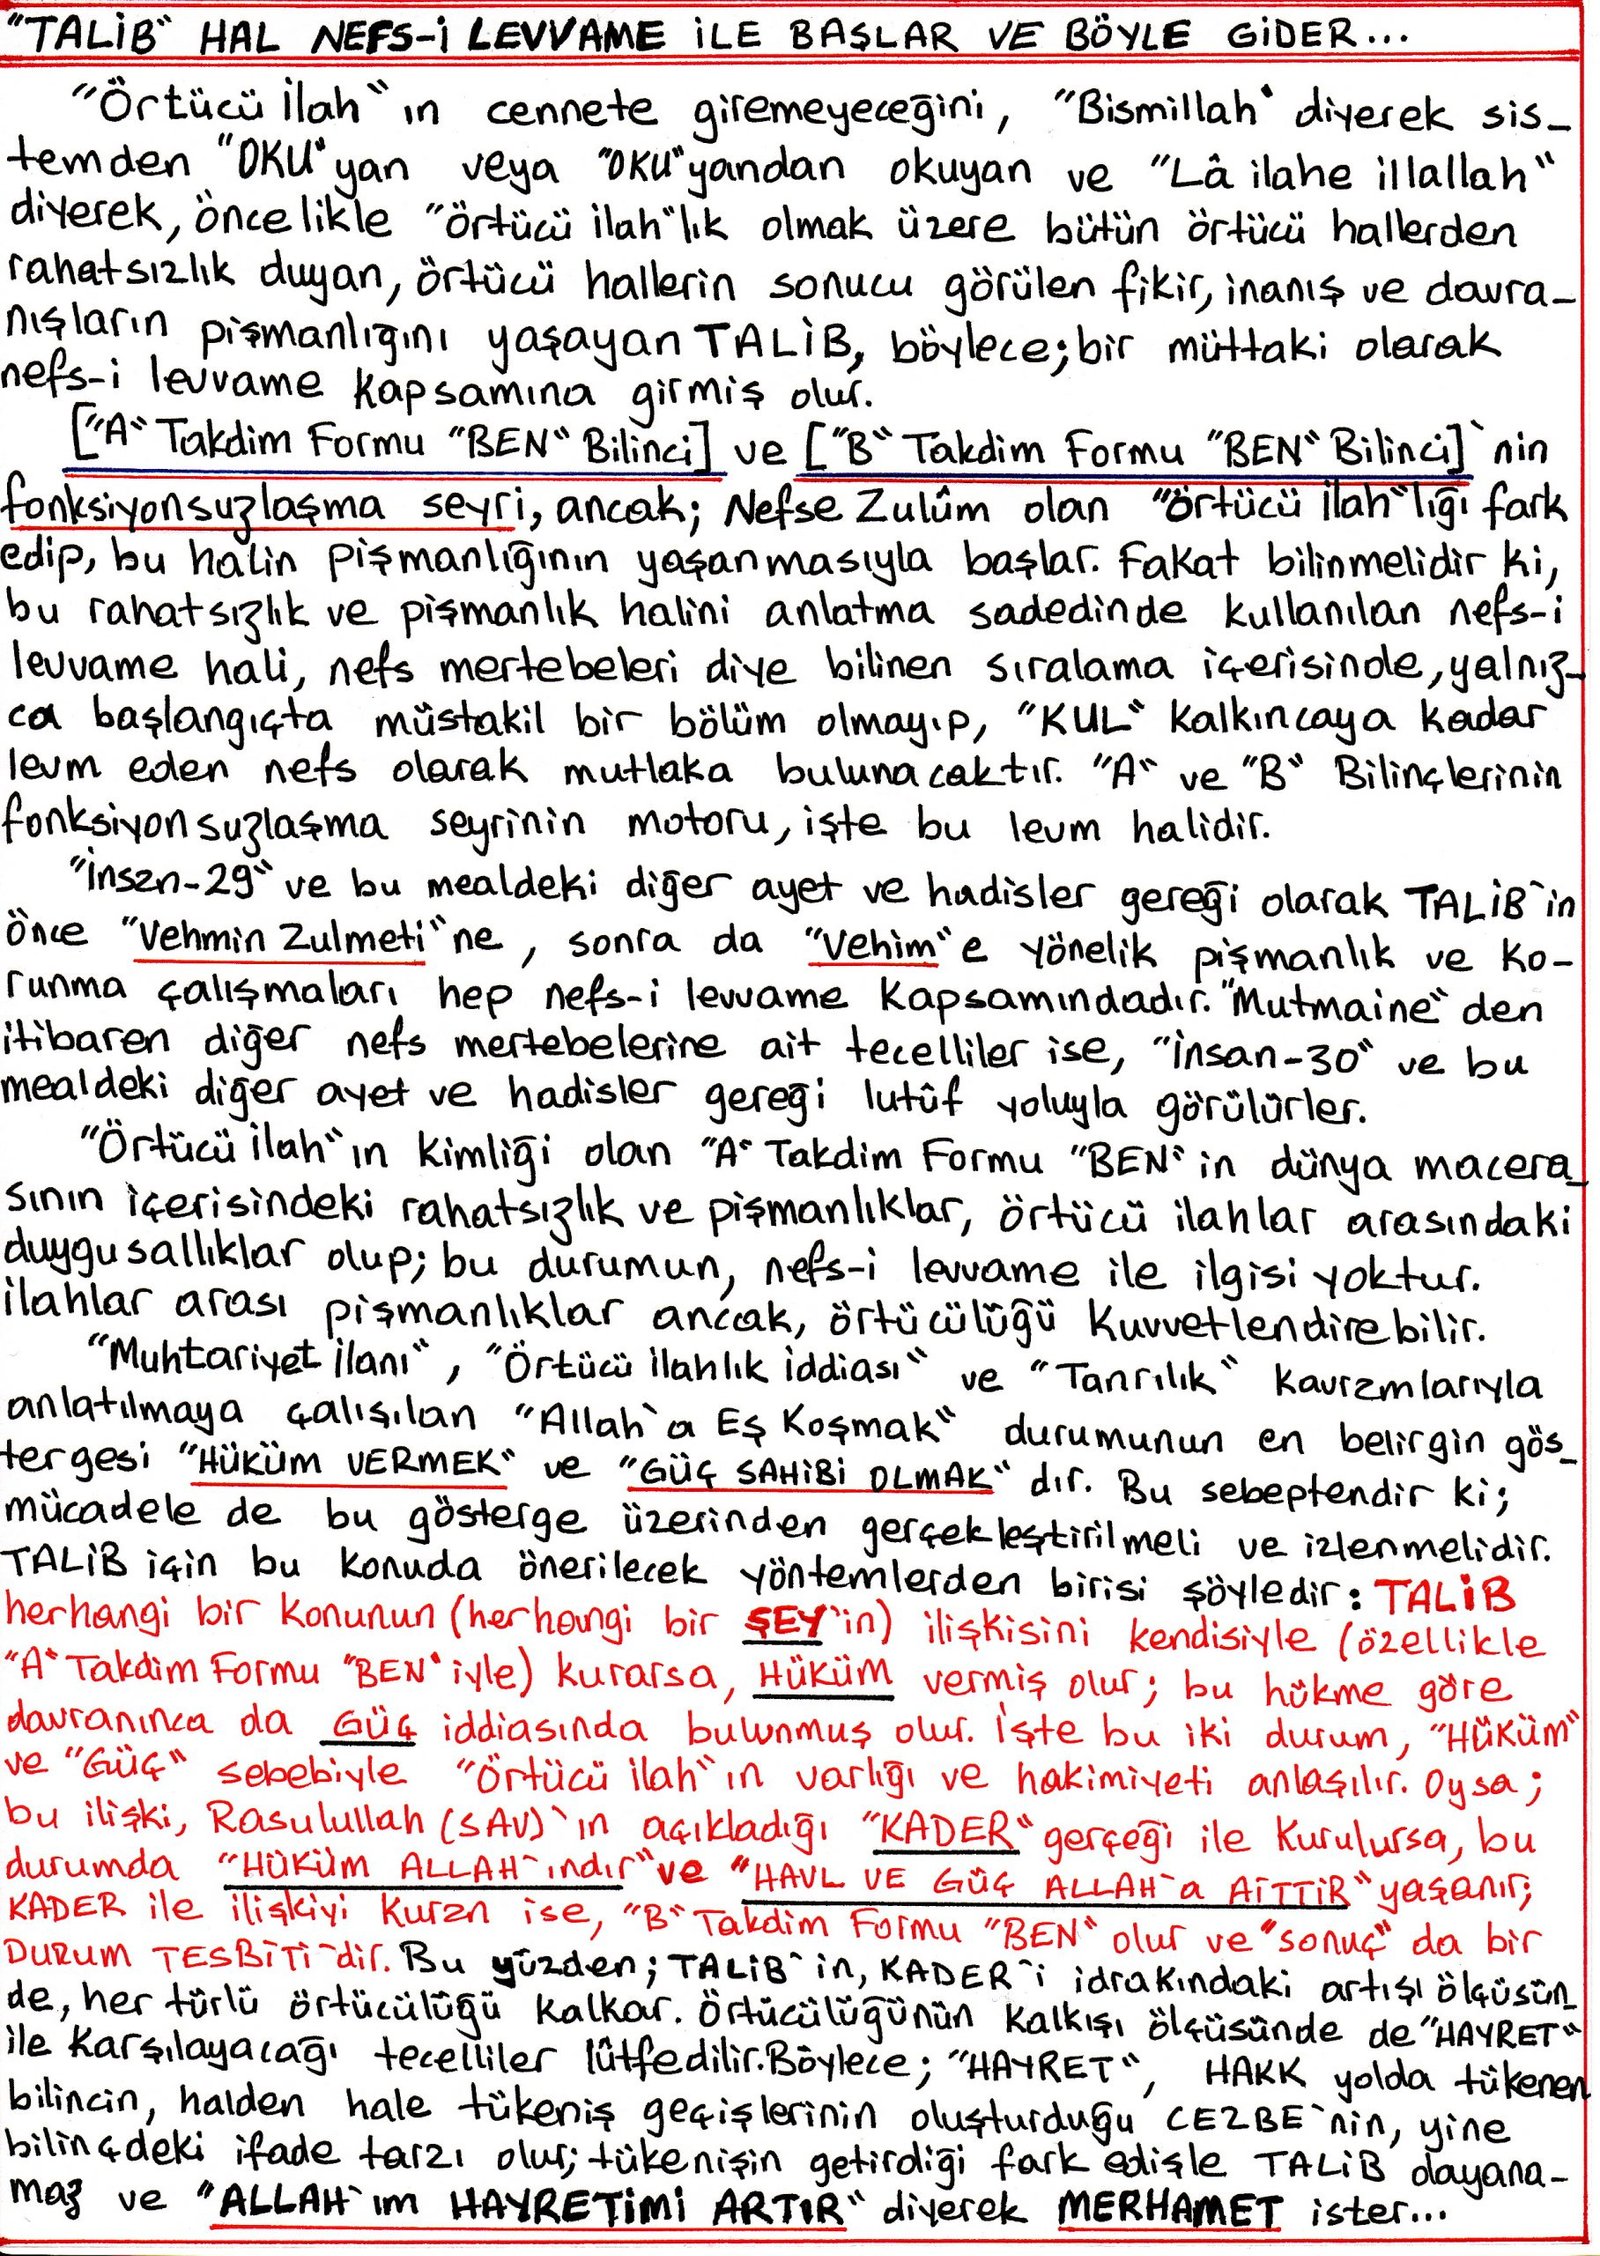 "TALİB" HAL NEFS-İ LEVVAME İLE BAŞLAR VE BÖYLE GİDER...
"Örtücü İlah"ın cennete giremeyeceğini, "Bismillah" diyerek sis-
temden "OKU"yan veya "OKU"yandan okuyan ve "Lâ ilahe illallah"
diyerek, öncelikle "örtücü ilah"lık olmak üzere bütün örtücü hallerden
rahatsızlık duyan, örtücü hallerin sonucu görülen fikir, inanış ve davra-
nışların pişmanlığını yaşayan TALİB, böylece; bir müttaki olarak
nefs-i levvame kapsamına girmiş olur.
["A" Takdim Formu "BEN" Bilinci] ve ["B" Takdim Formu "BEN" Bilinci]'nin
fonksiyonsuzlaşma seyri, ancak; Nefse Zulûm olan "örtücü İlah"lığı fark
edip, bu halin pişmanlığının yaşanmasıyla başlar. Fakat bilinmelidir ki,
bu rahatsızlık ve pişmanlık halini anlatma sadedinde kullanılan nefs-i
levvame hali, nefs mertebeleri diye bilinen sıralama içerisinde, yalnız-
ca başlangıçta müstakil bir bölüm olmayıp, "KUL" kalkıncaya kadar
levm eden nefs olarak mutlaka bulunacaktır. "A" ve "B" Bilinçlerinin
fonksiyonsuzlaşma seyrinin motoru, işte bu levm halidir.
"İnsan-29" ve bu mealdeki diğer ayet ve hadisler gereği olarak TALİB'in
önce "Vehmin Zulmeti"ne, sonra da "Vehim"e yönelik pişmanlık ve ko-
runma çalışmaları hep nefs-i levvame kapsamındadır. "Mutmaine"den
itibaren diğer nefs mertebelerine ait tecelliler ise, "İnsan-30" ve bu
mealdeki diğer ayet ve hadisler gereği lutûf yoluyla görülürler.
"Örtücü İlah"ın kimliği olan "A" Takdim Formu "BEN"in dünya macera-
sının içerisindeki rahatsızlık ve pişmanlıklar, örtücü ilahlar arasındaki
duygusallıklar olup; bu durumun, nefs-i levvame ile ilgisi yoktur.
ilahlar arası pişmanlıklar ancak, örtücülüğü kuvvetlendirebilir.
"Muhtariyet İlanı", "Örtücü İlahlık İddiası" ve "Tanrılık" kavramlarıyla
anlatılmaya çalışılan "Allah'a Eş Koşmak" durumunun en belirgin gös-
tergesi "HÜKÜM VERMEK" ve "GÜÇ SAHİBİ OLMAK"dır. Bu sebeptendir ki;
mücadele de bu gösterge üzerinden gerçekleştirilmeli ve izlenmelidir.
TALİB için bu konuda önerilecek yöntemlerden birisi şöyledir: TALİB
herhangi bir konunun (herhangi bir ŞEY'in) ilişkisini kendisiyle (özellikle
"A" Takdim Formu "BEN"iyle) kurarsa, HÜKÜM vermiş olur; bu hükme göre
davranınca da GÜÇ iddiasında bulunmuş olur. İşte bu iki durum, "HÜKÜM"
ve "GÜÇ" sebebiyle "Örtücü ilah"ın varlığı ve hakimiyeti anlaşılır. Oysa;
bu ilişki, Rasulullah (SAV)'ın açıkladığı "KADER" gerçeği ile kurulursa, bu
durumda "HÜKÜM ALLAH'ındır" ve "HAVL VE GÜÇ ALLAH'a AİTTİR" yaşanır;
KADER ile ilişkiyi kuran ise, "B" Takdim Formu "BEN" olur ve "sonuç" da bir
DURUM TESBİTİ'dir. Bu yüzden; TALİB'in, KADER'i idrakındaki artışı ölçüsün-
de, her türlü örtücülüğü kalkar. Örtücülüğünün kalkışı ölçüsünde de "HAYRET"
ile karşılayacağı tecelliler lûtfedilir. Böylece; "HAYRET", HAKK yolda tükenen
bilincin, halden hale tükeniş geçişlerinin oluşturduğu CEZBE'nin, yine
bilinçdeki ifade tarzı olur; tükenişin getirdiği fark edişle TALİB dayana-
maz ve "ALLAH'ım HAYRETİMİ ARTIR" diyerek MERHAMET ister...